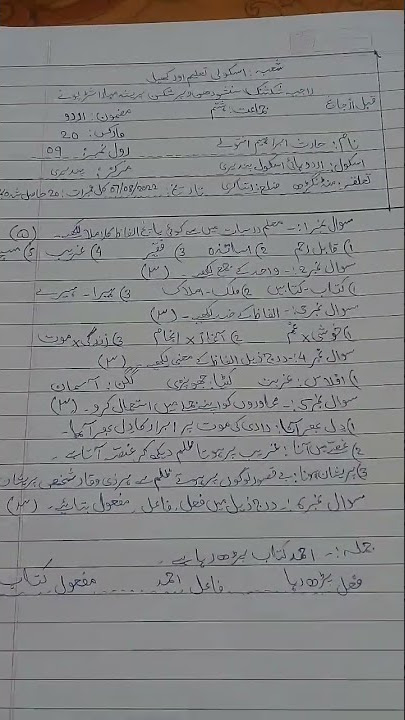 شعبہ: اسکولی تعلیم اور کھیل
قبل از جانچ جماعت: ہشتم مضمون: اردو
مارکس: 20
نام: حارث ابراہیم رول نمبر: 09
اسکول: اردو ہائی اسکول پندیری مرکز: پندیری
تعلقہ: منڈنگڑھ ضلع: رتناگری تاریخ: 07/08/2022 کل نمبرات: 20
سوال نمبر 1:۔ لکھیے۔ (۵)
1) قابلِ رحم 2) اساتذہ 3) فقیر 4) غریب 5)
سوال نمبر 2:۔ واحد کے جمع لکھیے۔ (۳)
1) کتاب - کتابیں 2) ملک - املاک 3) ہیرا - ہیرے
سوال نمبر 3:۔ الفاظ کے ضد لکھیے۔ (۳)
1) خوشی x غم 2) آغاز x انجام 3) زندگی x موت
سوال نمبر 4:۔ درج ذیل الفاظ کے معنی لکھیے۔ (۳)
1) افلاس: غربت کٹیا: جھونپڑی گگن: آسمان
سوال نمبر 5:۔ محاوروں کو اپنے جملے میں استعمال کرو۔ (۳)
1) دل بھر آنا: دادی کی موت پر ابرار کا دل بھر آیا۔
2) غصے میں آنا: غریب پر ہوتا ظلم دیکھ کر غصہ آتا ہے۔
3) پریشان ہونا: بے قصور لوگوں پر ہوئے ظلم سے ہر ذی وقار شخص پریشان
سوال نمبر 6:۔ درج ذیل میں فعل، فاعل، مفعول بتائیے۔ (۳)
جملہ:۔ احمد کتاب پڑھ رہا ہے۔
فعل پڑھ رہا فاعل احمد مفعول کتاب